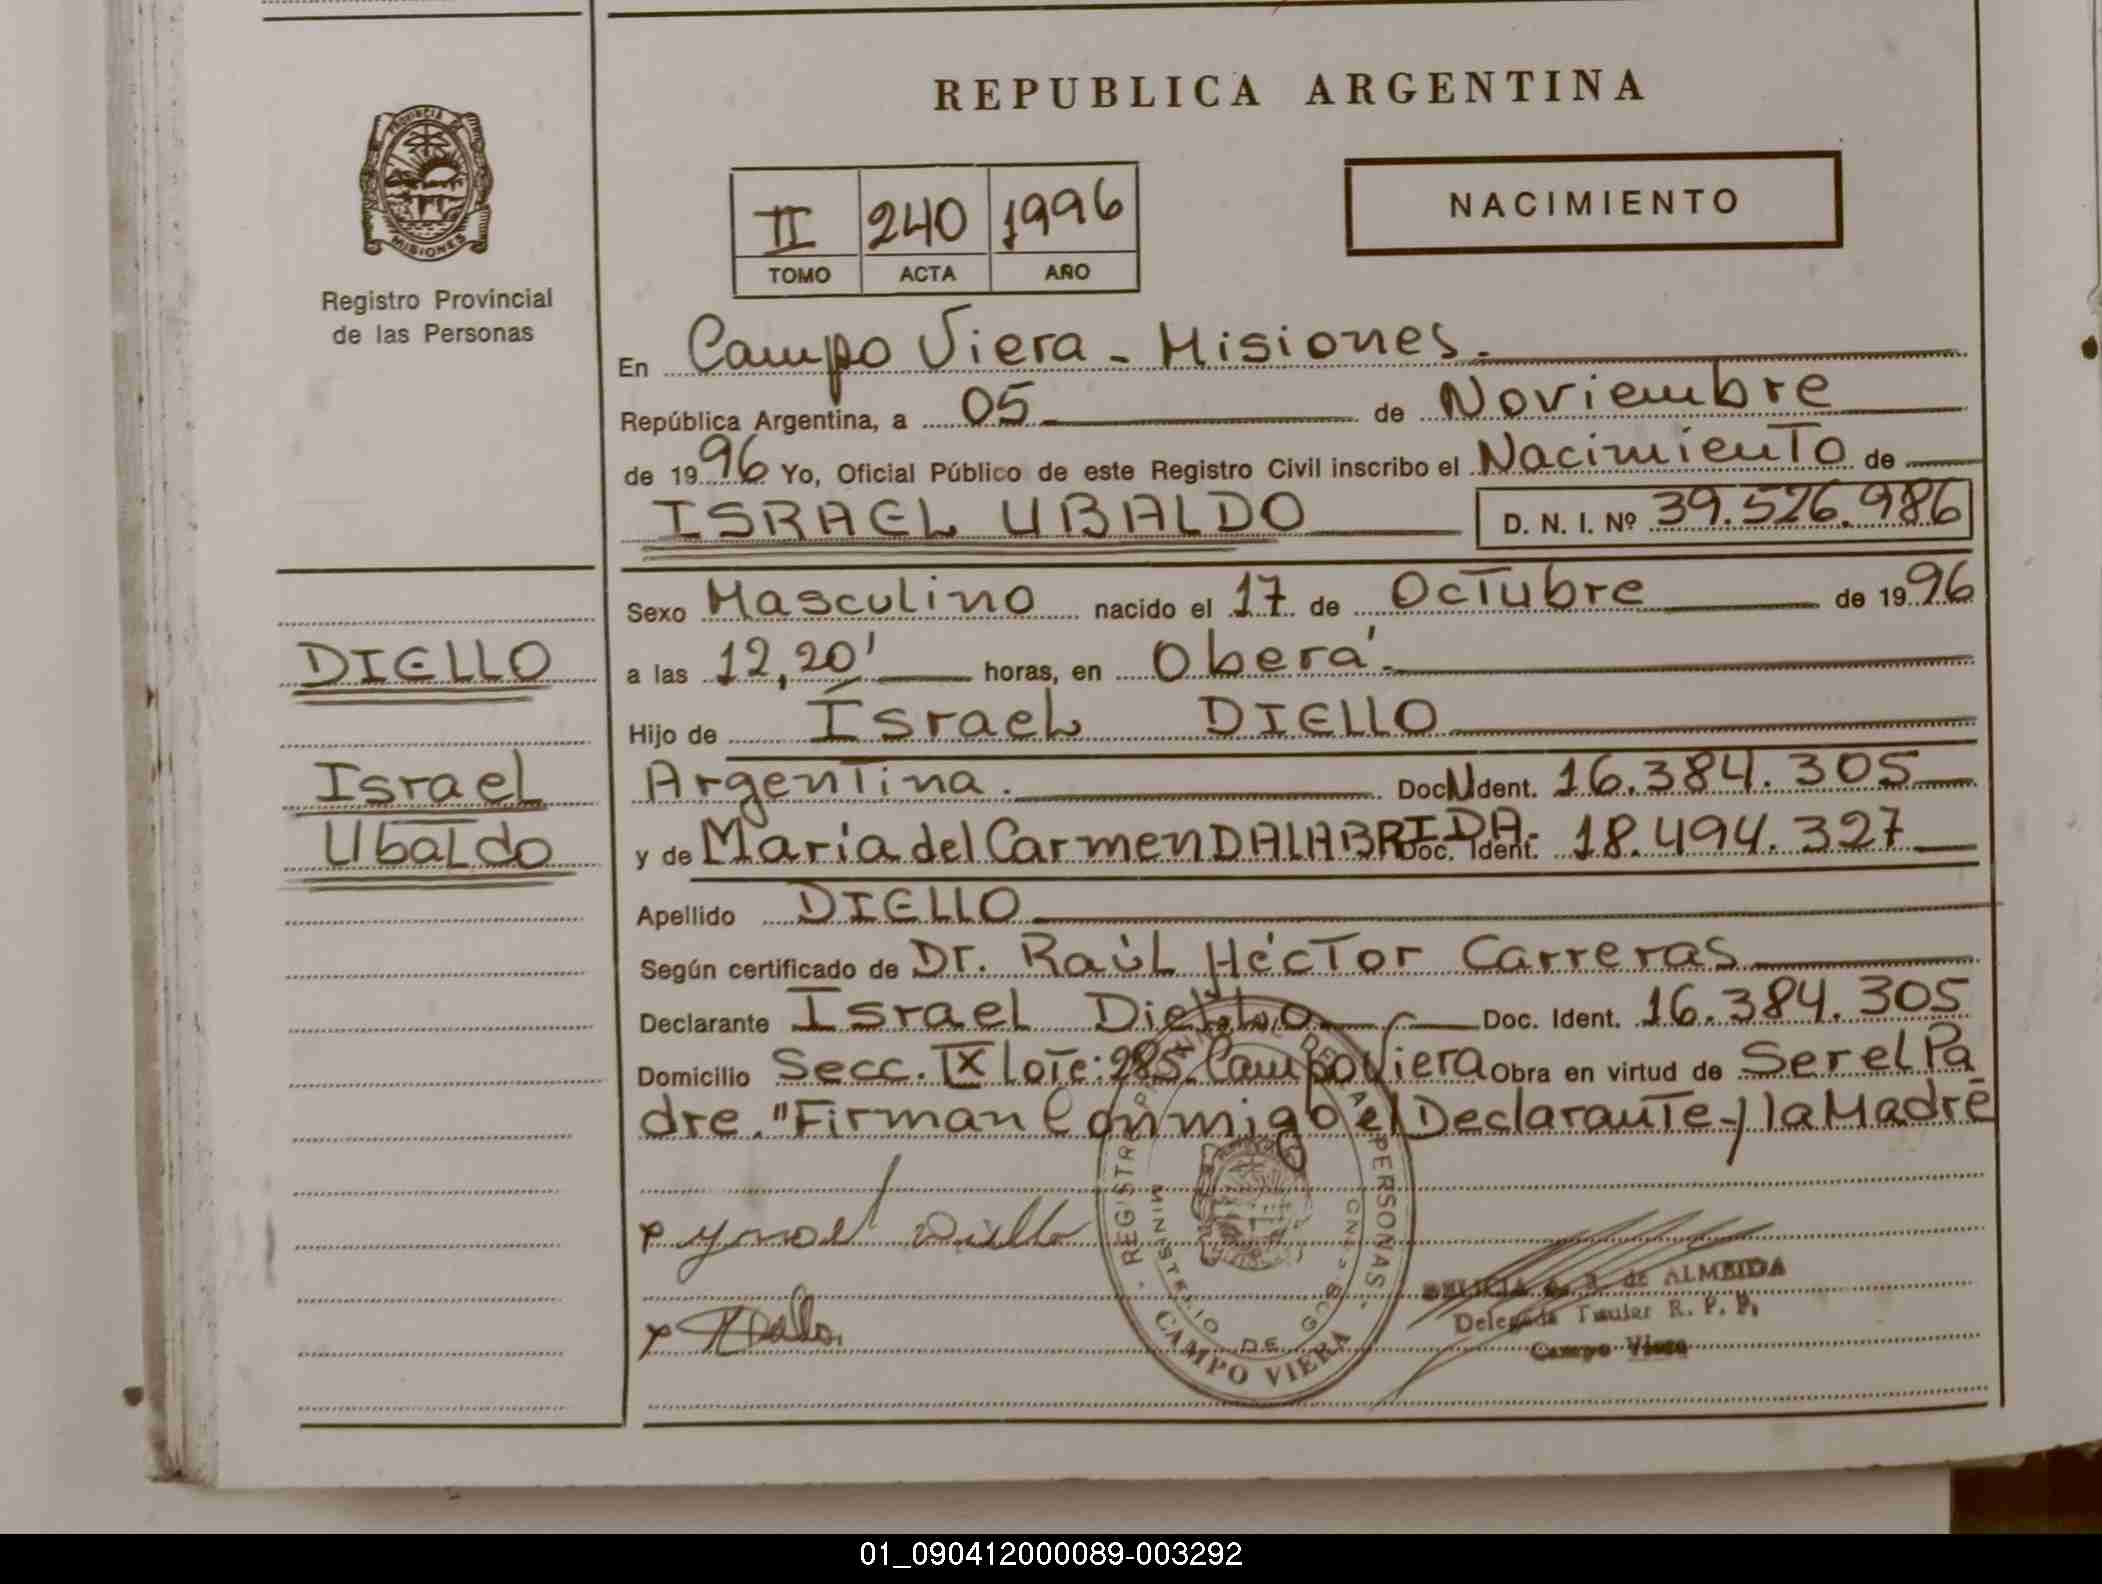 REPUBLICA ARGENTINA
PROVINCIA DE
MISIONES
Registro Provincial
de las Personas
NACIMIENTO
II 240 1996
TOMO ACTA AÑO
En Campo Viera - Misiones.
República Argentina, a 05 de Noviembre
de 1996 Yo, Oficial Público de este Registro Civil inscribo el Nacimiento de
ISRAEL UBALDO D. N. I. Nº 39.526.986
Sexo Masculino nacido el 17 de Octubre de 1996
DIELLO
a las 12,20' horas, en Oberá.
Hijo de Israel DIELLO
Israel
Argentina. Doc. Ident. 16.384.305
Ubaldo
y de María del Carmen DALABRIDA. Doc. Ident. 18.494.327
Apellido DIELLO
Según certificado de Dr. Raúl Héctor Carreras
Declarante Israel Diello Doc. Ident. 16.384.305
Domicilio Secc. IX Lote: 285. Campo Viera Obra en virtud de Ser el Pa
dre. "Firman Conmigo el Declarante y la Madre
REGISTRO PROVINCIAL DE LAS PERSONAS
MINISTERIO DE GOB.
CAMPO VIERA
x Ysrael Diello
x
de ALMEIDA
Delegada Titular R. P. P.
Campo Viera
01_090412000089-003292